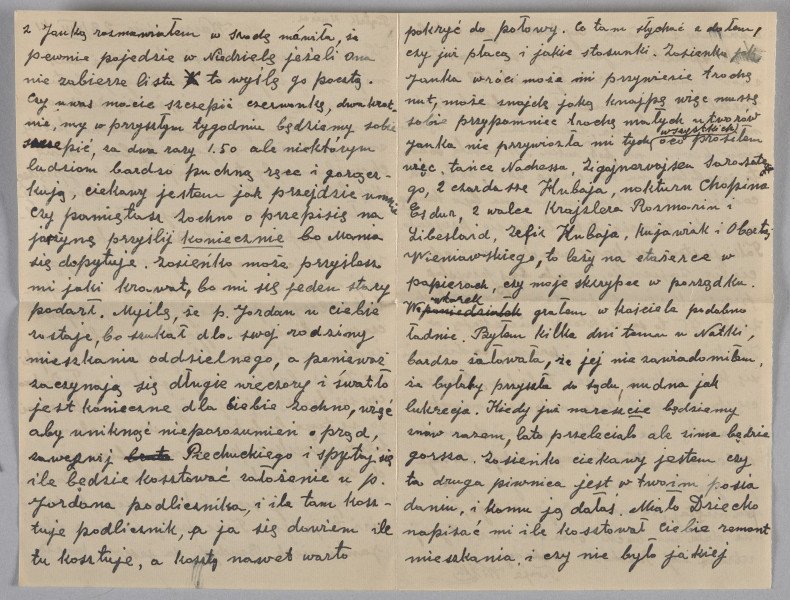 z Janką rozmawiałem w środę mówiła, że
pewnie pojedzie w Niedzielę jeżeli ona
nie zabierze listu to wyślę go pocztą.
Czy u was macie szczepić czerwonkę, dwukrot-
nie, my w przyszłym tygodniu będziemy sobie
szczepić, za dwa razy 1.50 ale niektórym
ludziom bardzo puchną ręce i gorącz-
kują, ciekawy jestem jak przejdzie u mnie
Czy pamiętasz Zochno o przepisie na
jarzynę przyślij koniecznie bo Mania
się dopytuje. Zosieńko może przyślesz
mi jaki krawat, bo mi się jeden stary
podarł. Myślę, że p. Jordan u ciebie
zostaje, bo szukał dla swej rodziny
mieszkania oddzielnego, a ponieważ
zaczynają się długie wieczory i światło
jest konieczne dla ciebie Zochno, więc
aby uniknąć nieporozumień o prąd,
zawezwij Piechuckiego i spytaj się
ile będzie kosztować założenie u p.
Jordana podlicznika, i ile tam kosz-
tuje podlicznik, a ja się dowiem ile
tu kosztuje, a koszty nawet warto
pokryć do połowy. Co tam słychać z dołem,
czy już płacą i jakie stosunki. Zosieńko
Janka wróci może mi przywiezie trochę
nut, może znajdę jaką knajpę więc muszę
sobie przypomnieć trochę małych utworów
Janka nie przywiozła mi tych wszystkich o co prosiłem
więc, tańce Nachessa, Zigajnerwajsen Sarasatego,
2 czardasze Hubaja, nokturn Chopina
Es dur, 2 walce Krajslera Rozmarin i
Libeslaid, Zefir Hubaja, Kujawiak i Obertas
Wieniawskiego, to leży na etażerce w
papierach, czy moje skrzypce w porządku.
We wtorek grałem w kościele podobno
ładnie. Byłem kilka dni temu u Natki,
bardzo żałowała, że jej nie zawiadomiłem,
że byłaby przyszła do sądu, nudna jak
lukrecja. Kiedy już nareszcie będziemy
znów razem, lato przeleciało ale zima będzie
gorsza. Zosieńko ciekawy jestem czy
ta druga piwnica jest w twoim posia
daniu, i komu ją dałaś. Miało Dziecko
napisać mi ile kosztował ciebie remont
mieszkania, i czy nie było jakiej